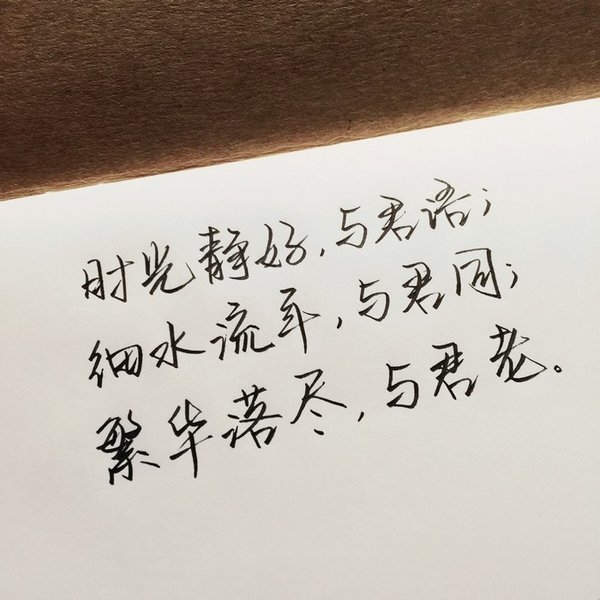 时光静好，与君语；
细水流年，与君同；
繁华落尽，与君老。